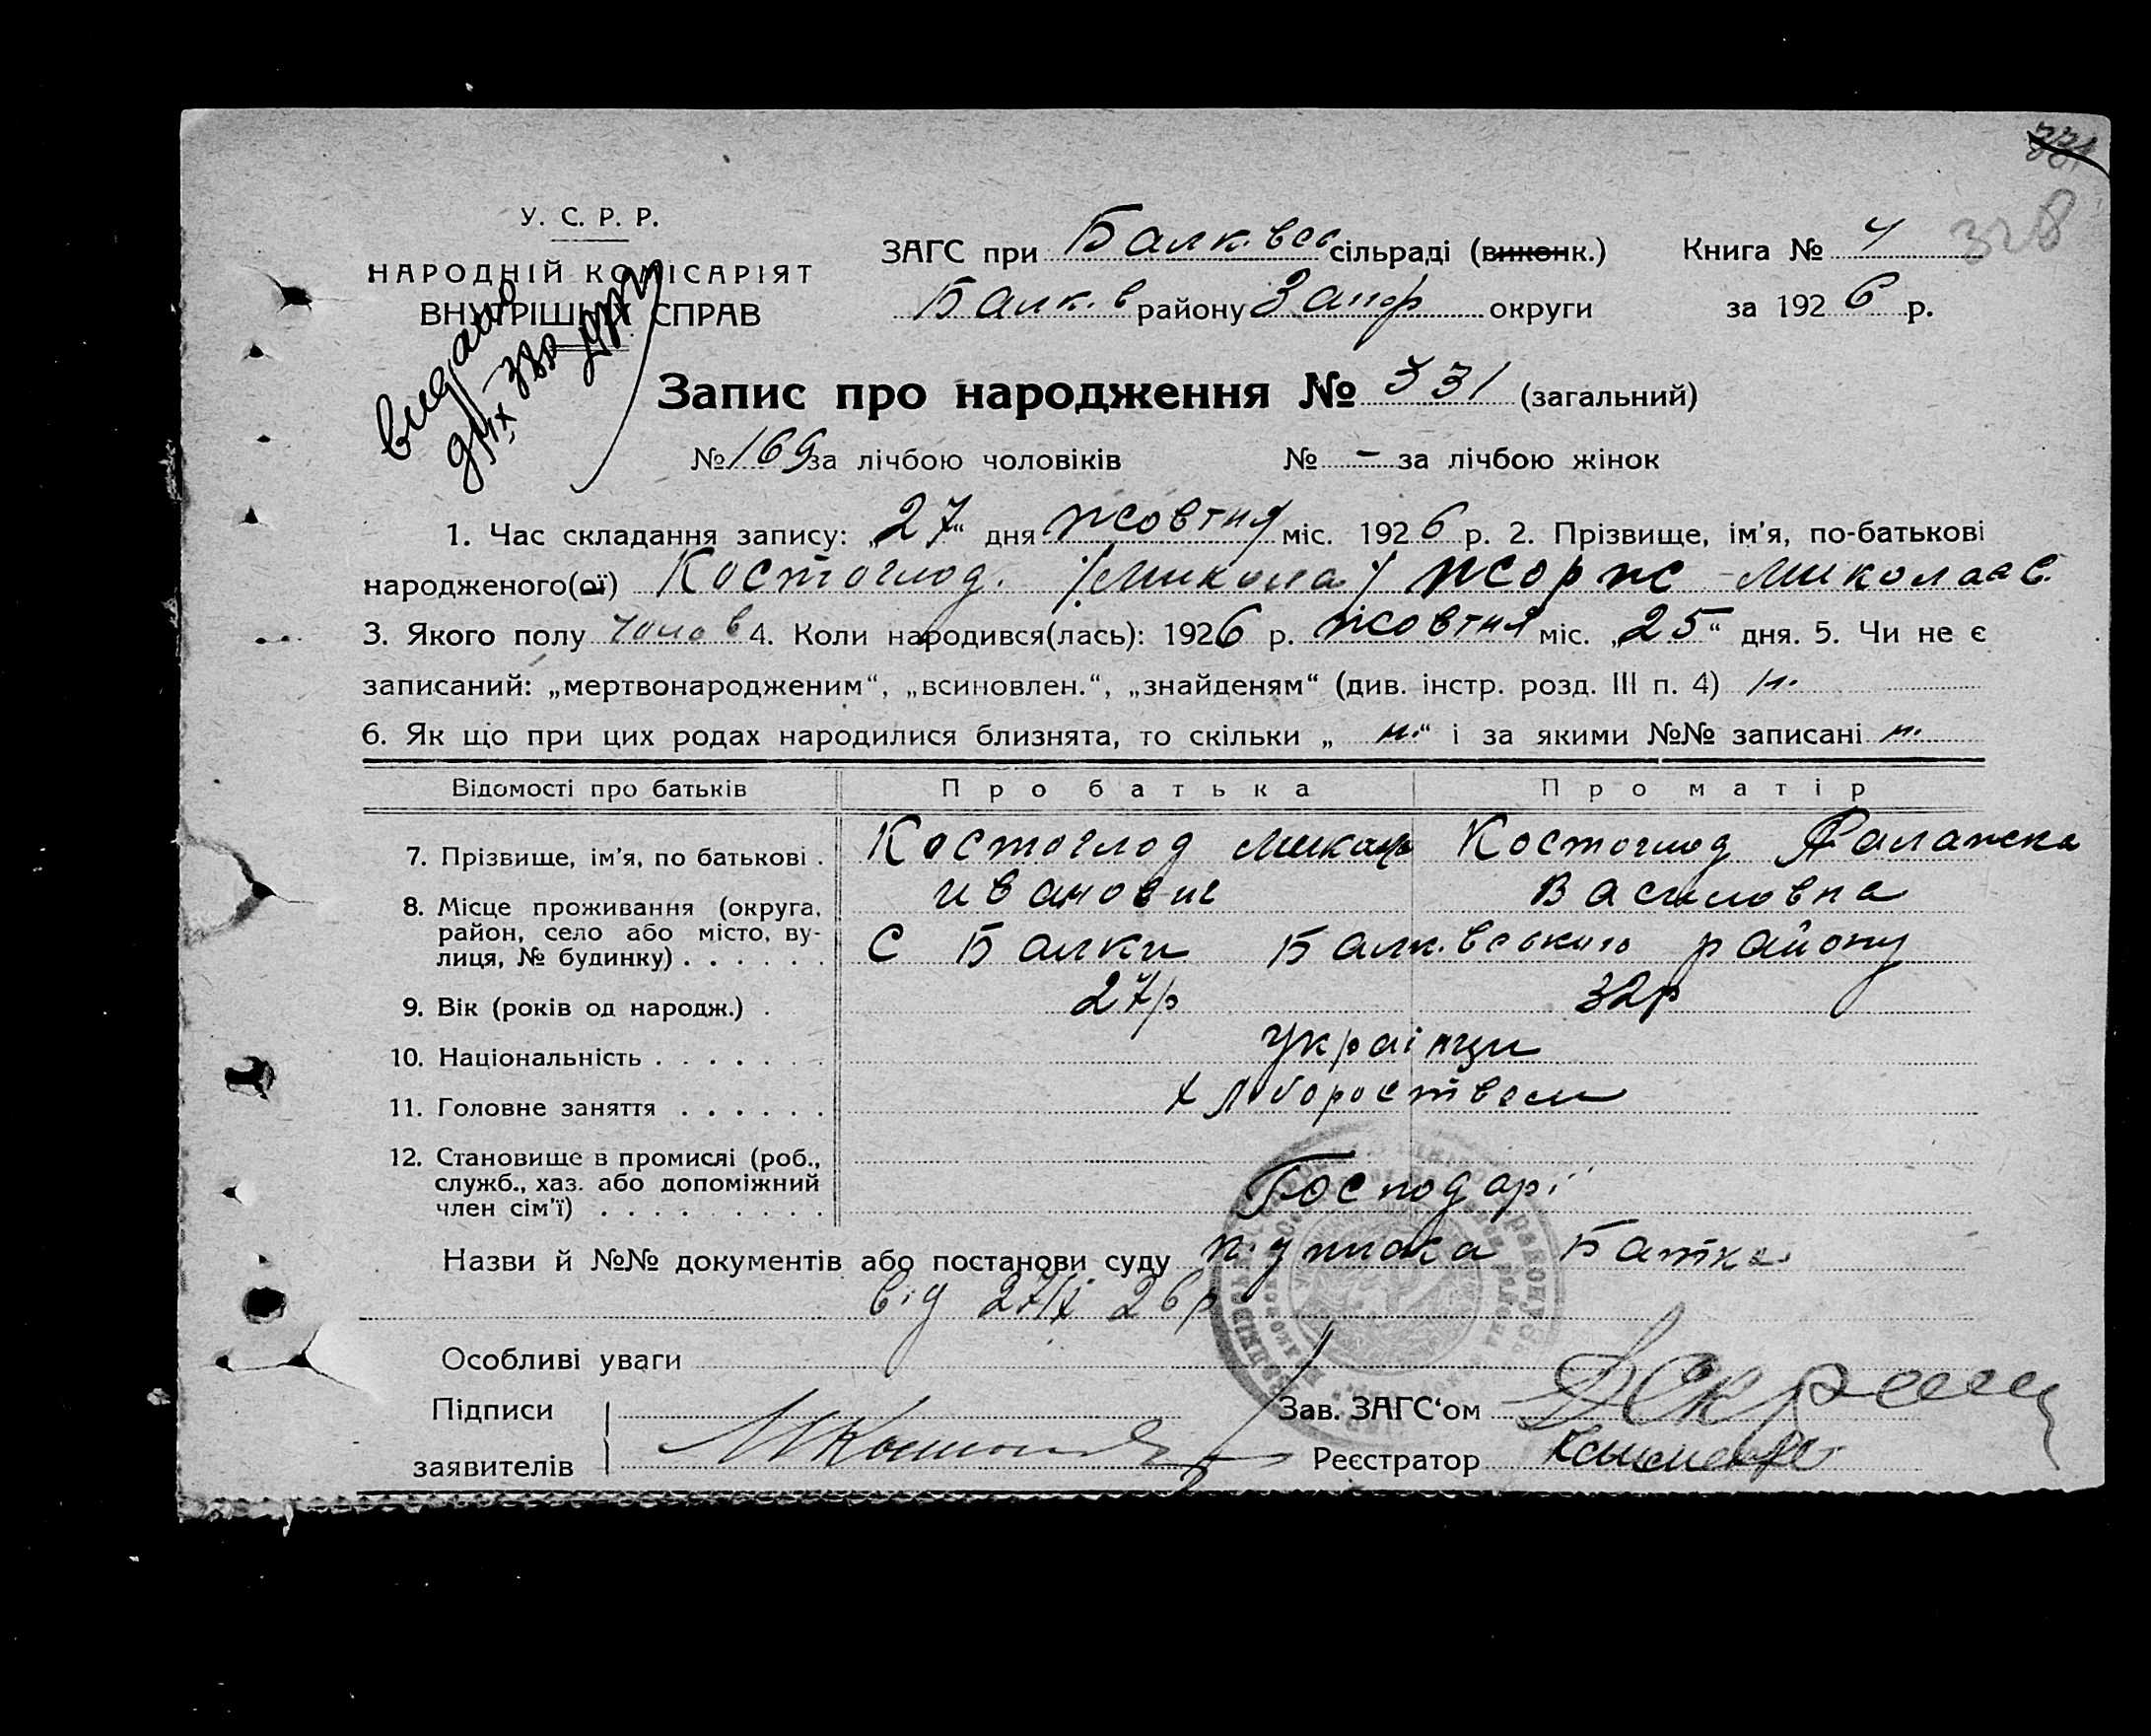 331
328
У. С. Р. Р.
НАРОДНІЙ КОМІСАРІЯТ
ВНУТРІШНІХ СПРАВ
видано
ЗАГС при Балк.вск сільраді (виконк.) Книга № 4
Балк.в району Запор округи за 1926 р.
Запис про народження № 331 (загальний)
№ 169 за лічбою чоловіків № - за лічбою жінок
1. Час складання запису: „27“ дня жовтня міс. 1926 р. 2. Прізвище, ім'я, по-батькові
народженого(ої) Костоглод. /Микола/ Жорж Миколаев.
3. Якого полу чолов 4. Коли народився(лась): 1926 р. жовтня міс. „25“ дня. 5. Чи не є
записаний: „мертвонародженим“, „всиновлен.“, „знайденям“ (див. інстр. розд. III п. 4) н.
6. Як що при цих родах народилися близнята, то скільки „н.“ і за якими №№ записані н.
Відомості про батьків Про батька Про матір
7. Прізвище, ім'я, по батькові . Костоглод Микола Костоглод Палажка
Иванович Василовна
8. Місце проживання (округа,
район, село або місто, ву-
лиця, № будинку) . . . . . . С Балки Балк.вського району
9. Вік (років од народж.) . 27р 32р
10. Національність . . . . . . Українци
11. Головне заняття . . . . . . хліборобством
12. Становище в промислі (роб.,
служб., хаз. або допоміжний
член сім'ї) . . . . . . . . . Господарі
Назви й №№ документів або постанови суду Батка
від 27/X 26р
Особливі уваги
Підписи Зав. ЗАГС‘ом
заявителів Реєстратор